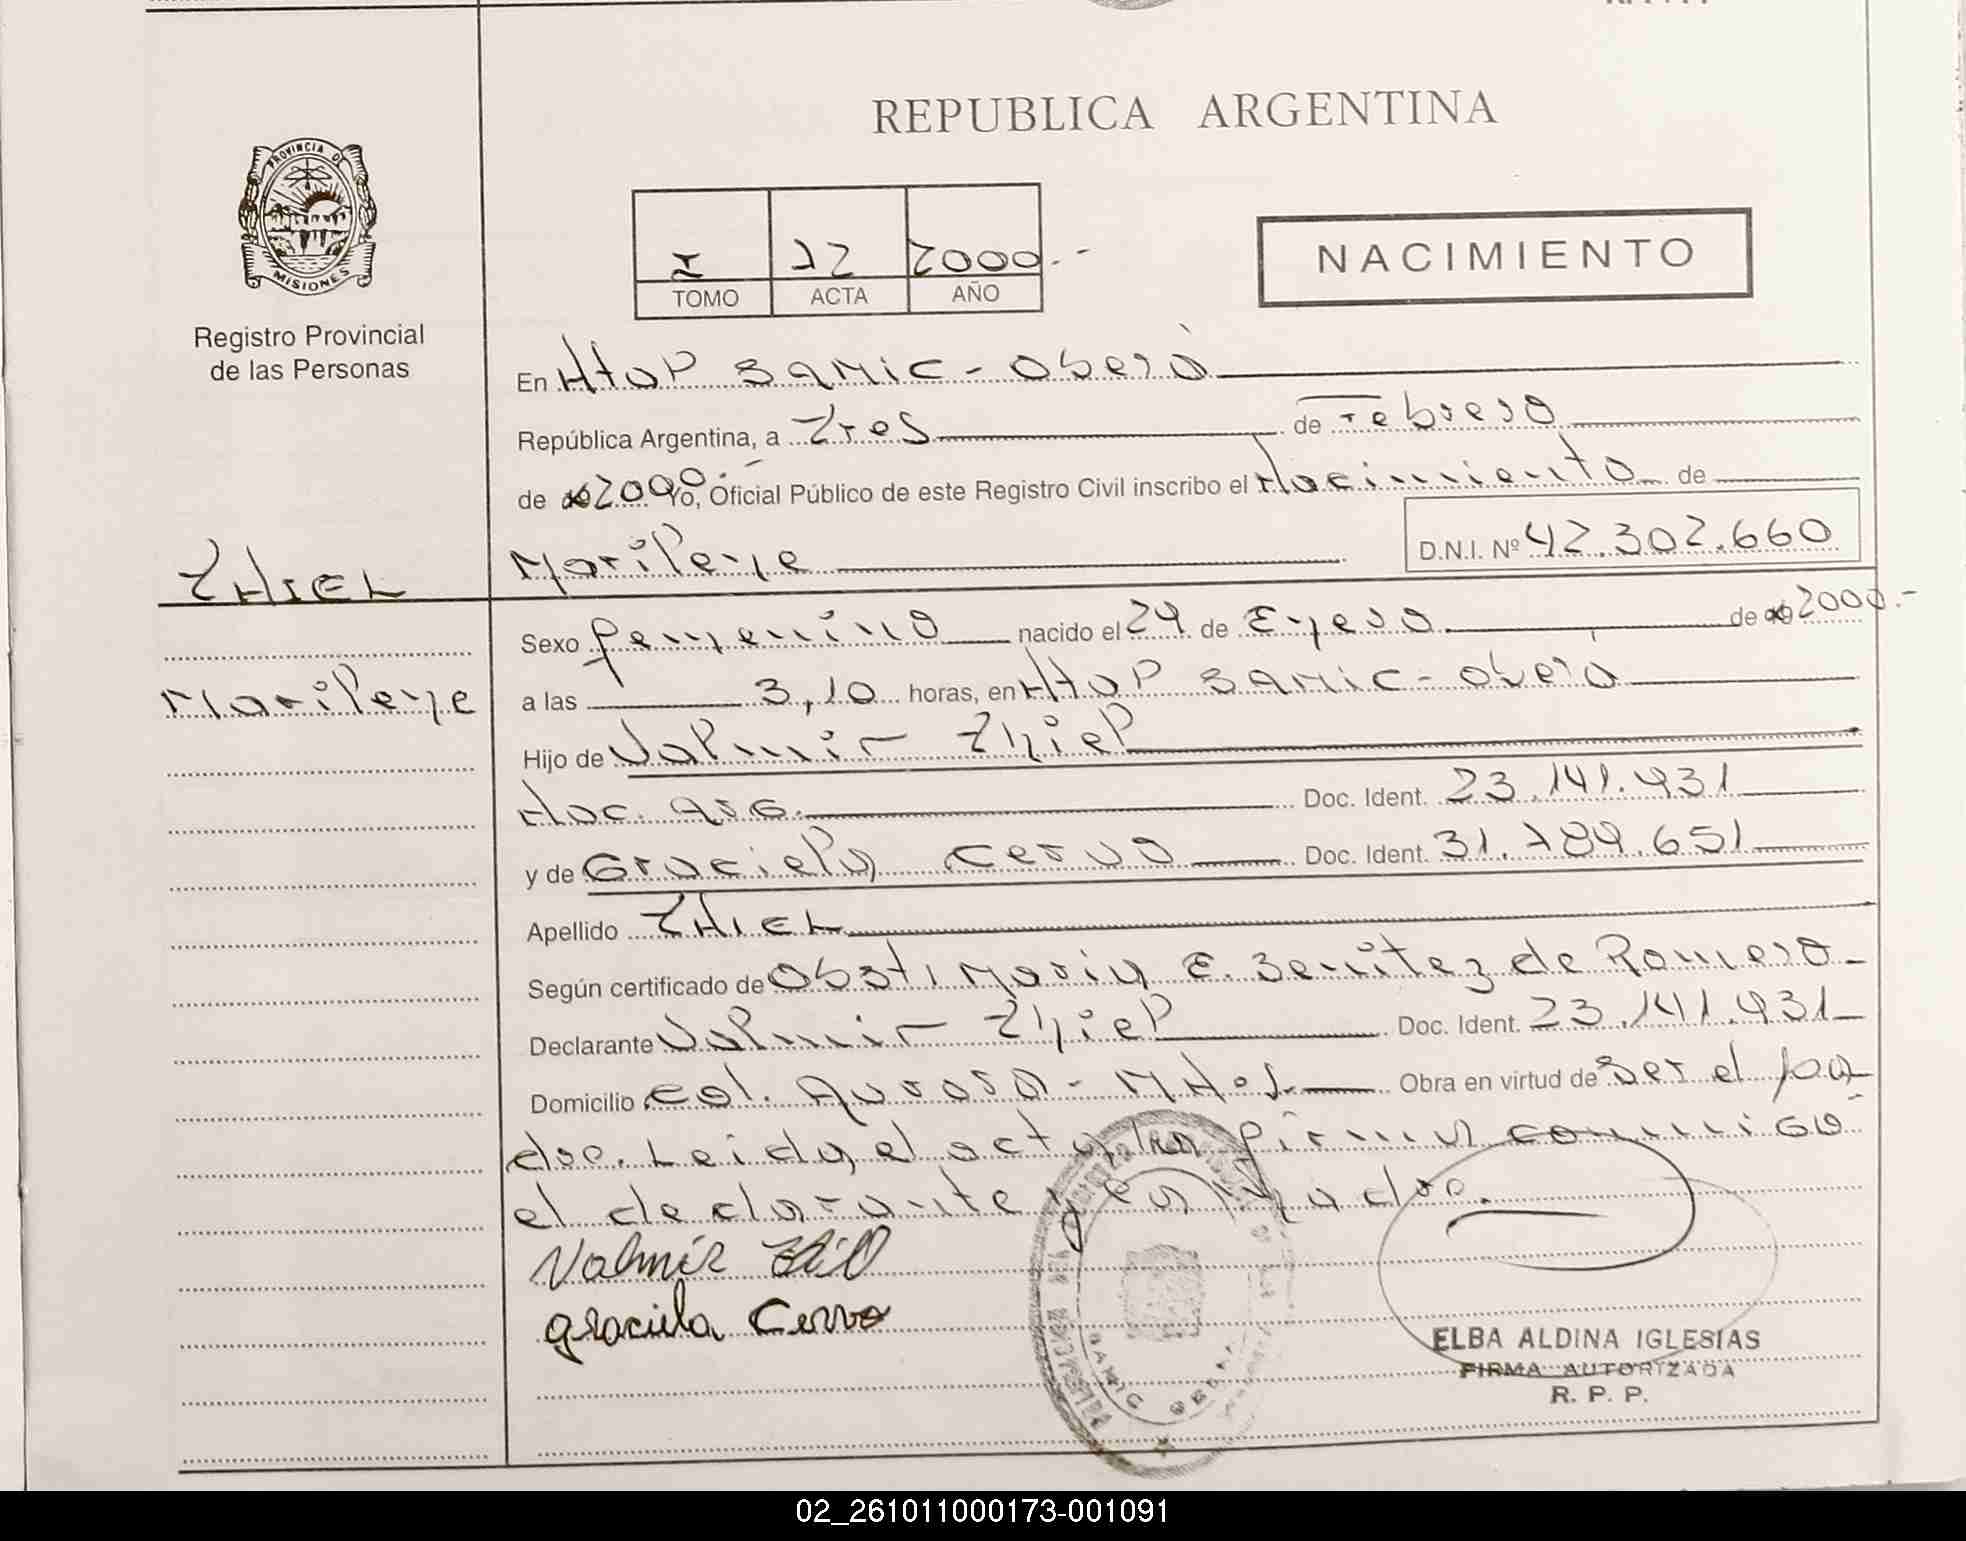 REPUBLICA ARGENTINA
PROVINCIA DE
MISIONES
Registro Provincial
de las Personas
I 72 2000.-
TOMO ACTA AÑO
NACIMIENTO
En Htal Samic - Oberà
República Argentina, a Tres de Febrero
de 2000.- Yo, Oficial Público de este Registro Civil inscribo el Nacimiento de
THIEL Marilene D.N.I. Nº 42.302.660
Sexo femenino nacido el 24 de Enero de 2000.-
Marilene
a las 3,10 horas, en Htal Samic - Oberà
Hijo de Valmir Thiel
Nac. Arg. Doc. Ident. 23.141.931
y de Graciela Cervo Doc. Ident. 31.789.651
Apellido THIEL
Según certificado de Obst. Maria E. Benitez de Romero -
Declarante Valmir Thiel Doc. Ident. 23.141.931
Domicilio Col. Aurora - Mnes. Obra en virtud de ser el pa
dre. Leida el acta la firman conmigo
el declarante y la madre.
Valmir Thiel
graciela Cervo
SAMIC OBERA
ELBA ALDINA IGLESIAS
FIRMA AUTORIZADA
R. P. P.
02_261011000173-001091